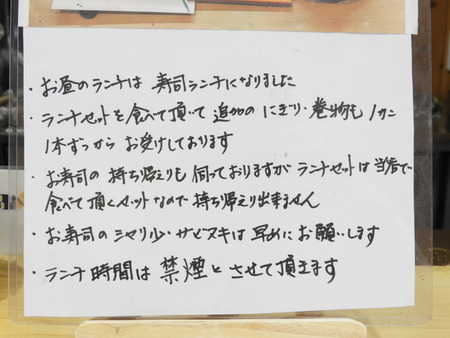 ・お昼のランチは 寿司ランチになりました
・ランチセットを食べて頂いて 追加の にぎり・巻物も 1カン
1本ずつから お受けしております
・お寿司の 持ち帰りも 伺っておりますが ランチセットは 当店で
食べて頂くセットなので 持ち帰り出来ません
・お寿司のシャリ少・サビヌキは 早めにお願いします
・ランチ時間は 禁煙とさせて頂きます